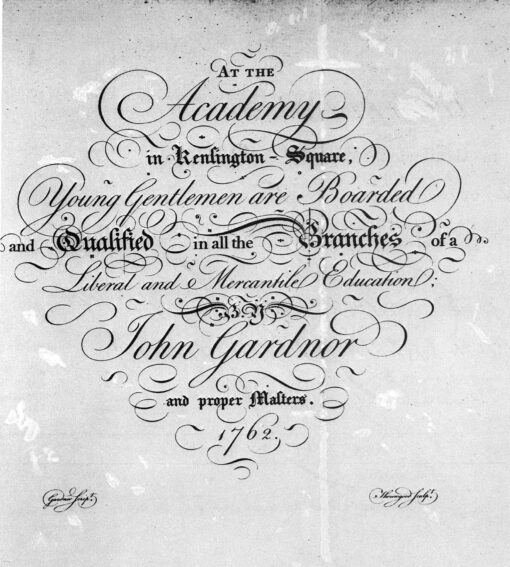 AT THE
Academy
in Kenſington-Square,
Young Gentlemen are Boarded
and Qualified in all the Branches of a
Liberal and Mercantile Education;
BY
John Gardnor
and proper Maſters.
1762.
Gardnor ſcripſt.
ſculpt.